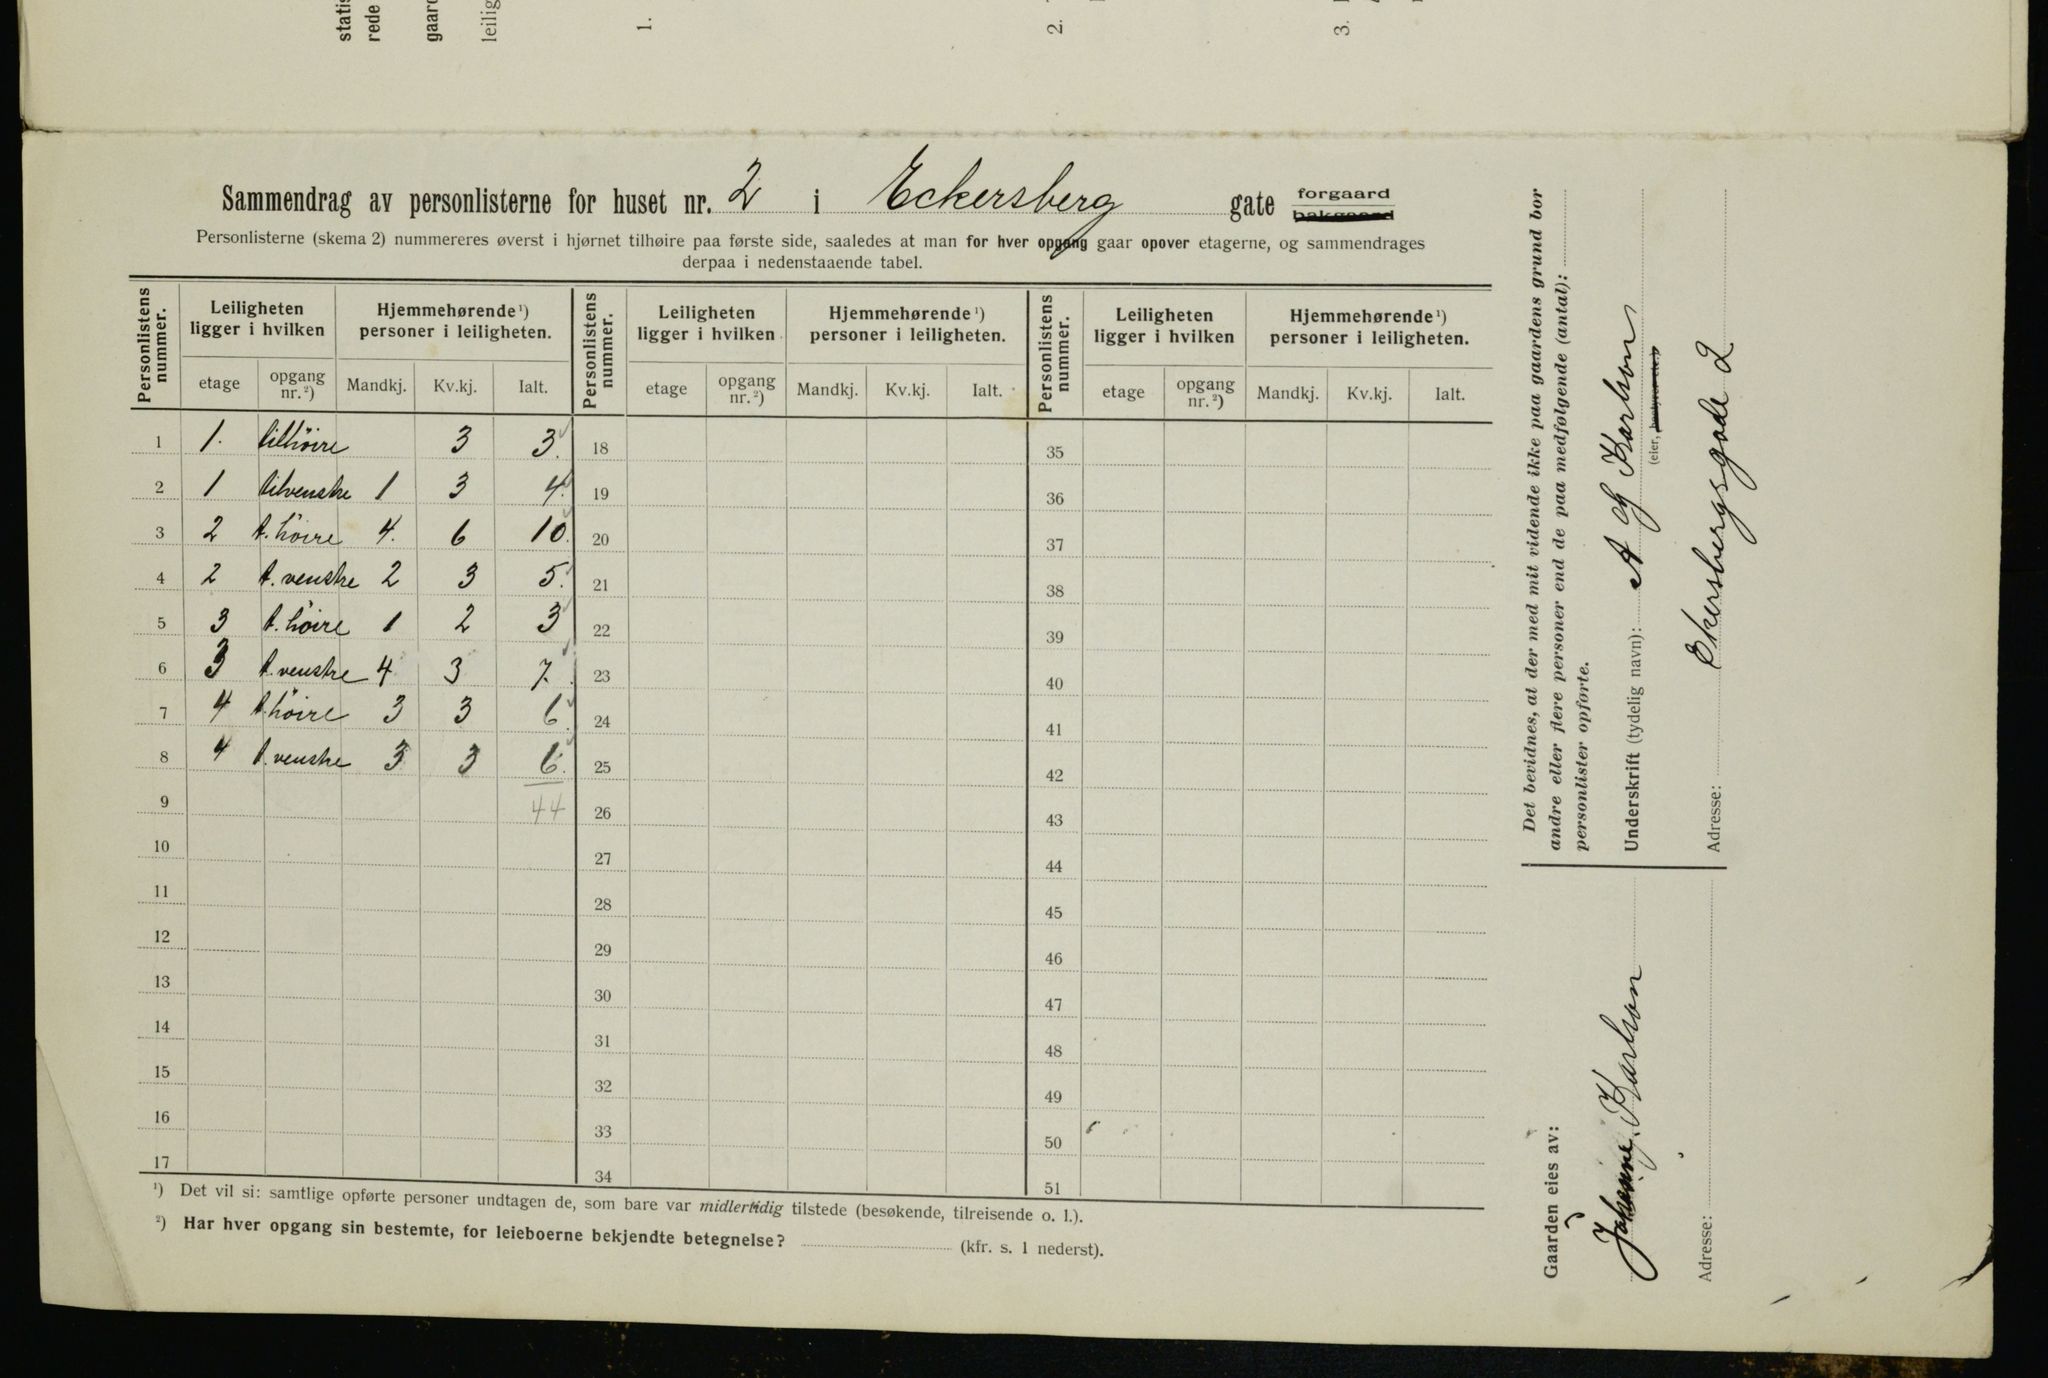 statis
rede
gaard
leilig
1.
2.
3.
Sammendrag av personlisterne for huset nr. 2 i Eckersberg gate forgaard bakgaard
Personlisterne (skema 2) nummereres øverst i hjørnet tilhøire paa første side, saaledes at man for hver opgang gaar opover etagerne, og sammendrages
derpaa i nedenstaaende tabel.
Personlistens nummer. Leiligheten ligger i hvilken Hjemmehørende ¹) personer i leiligheten. Personlistens nummer. Leiligheten ligger i hvilken Hjemmehørende ¹) personer i leiligheten. Personlistens nummer. Leiligheten ligger i hvilken Hjemmehørende ¹) personer i leiligheten.
etage opgang nr. ²) Mandkj. Kv.kj. Ialt. etage opgang nr. ²) Mandkj. Kv.kj. Ialt. etage opgang nr. ²) Mandkj. Kv.kj. Ialt.
1 1. tilhöire 3 3. 18 35
2 1 tilvenstre 1 3 4. 19 36
3 2 t. höire 4. 6 10. 20 37
4 2 t. venstre 2 3 5. 21 38
5 3 t. höire 1 2 3 22 39
6 3 t. venstre 4 3 7. 23 40
7 4 t. höire 3 3 6 24 41
8 4 t. venstre 3 3 6. 25 42
9 44 26 43
10 27 44
11 28 45
12 29 46
13 30 47
14 31 48
15 32 49
16 33 50
17 34 51
¹) Det vil si: samtlige opførte personer undtagen de, som bare var midlertidig tilstede (besøkende, tilreisende o. l.).
²) Har hver opgang sin bestemte, for leieboerne bekjendte betegnelse? (kfr. s. 1 nederst).
Det bevidnes, at der med mit vidende ikke paa gaardens grund bor
andre eller flere personer end de paa medfølgende (antal):
personlister opførte.
Underskrift (tydelig navn): A G Karlson
(eier, bestyrer etc.)
Adresse: Ekersbergsgade 2
Gaarden eies av:
Karlson
Adresse: